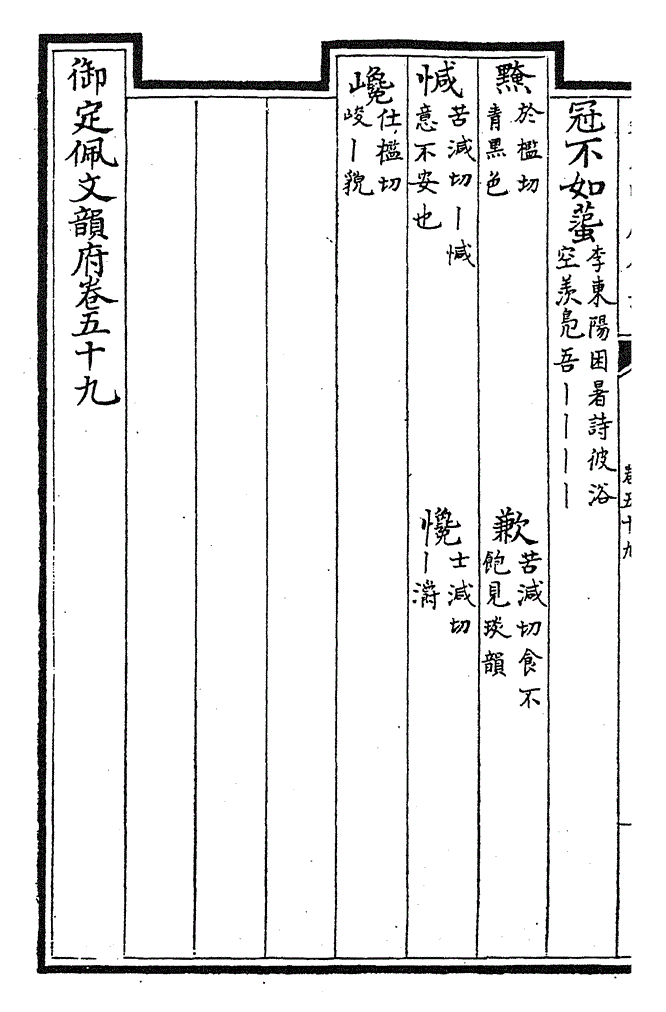 冠不如蠆李東陽困暑詩彼浴
空羨鳧吾丨丨丨丨
黤於檻切
青黑色
歉苦減切食不
飽見琰韻
喊苦減切丨惐
意不安也
㦌士減切
丨㵐
巉仕檻切
峻丨貌
御定佩文韻府卷五十九
卷五十九